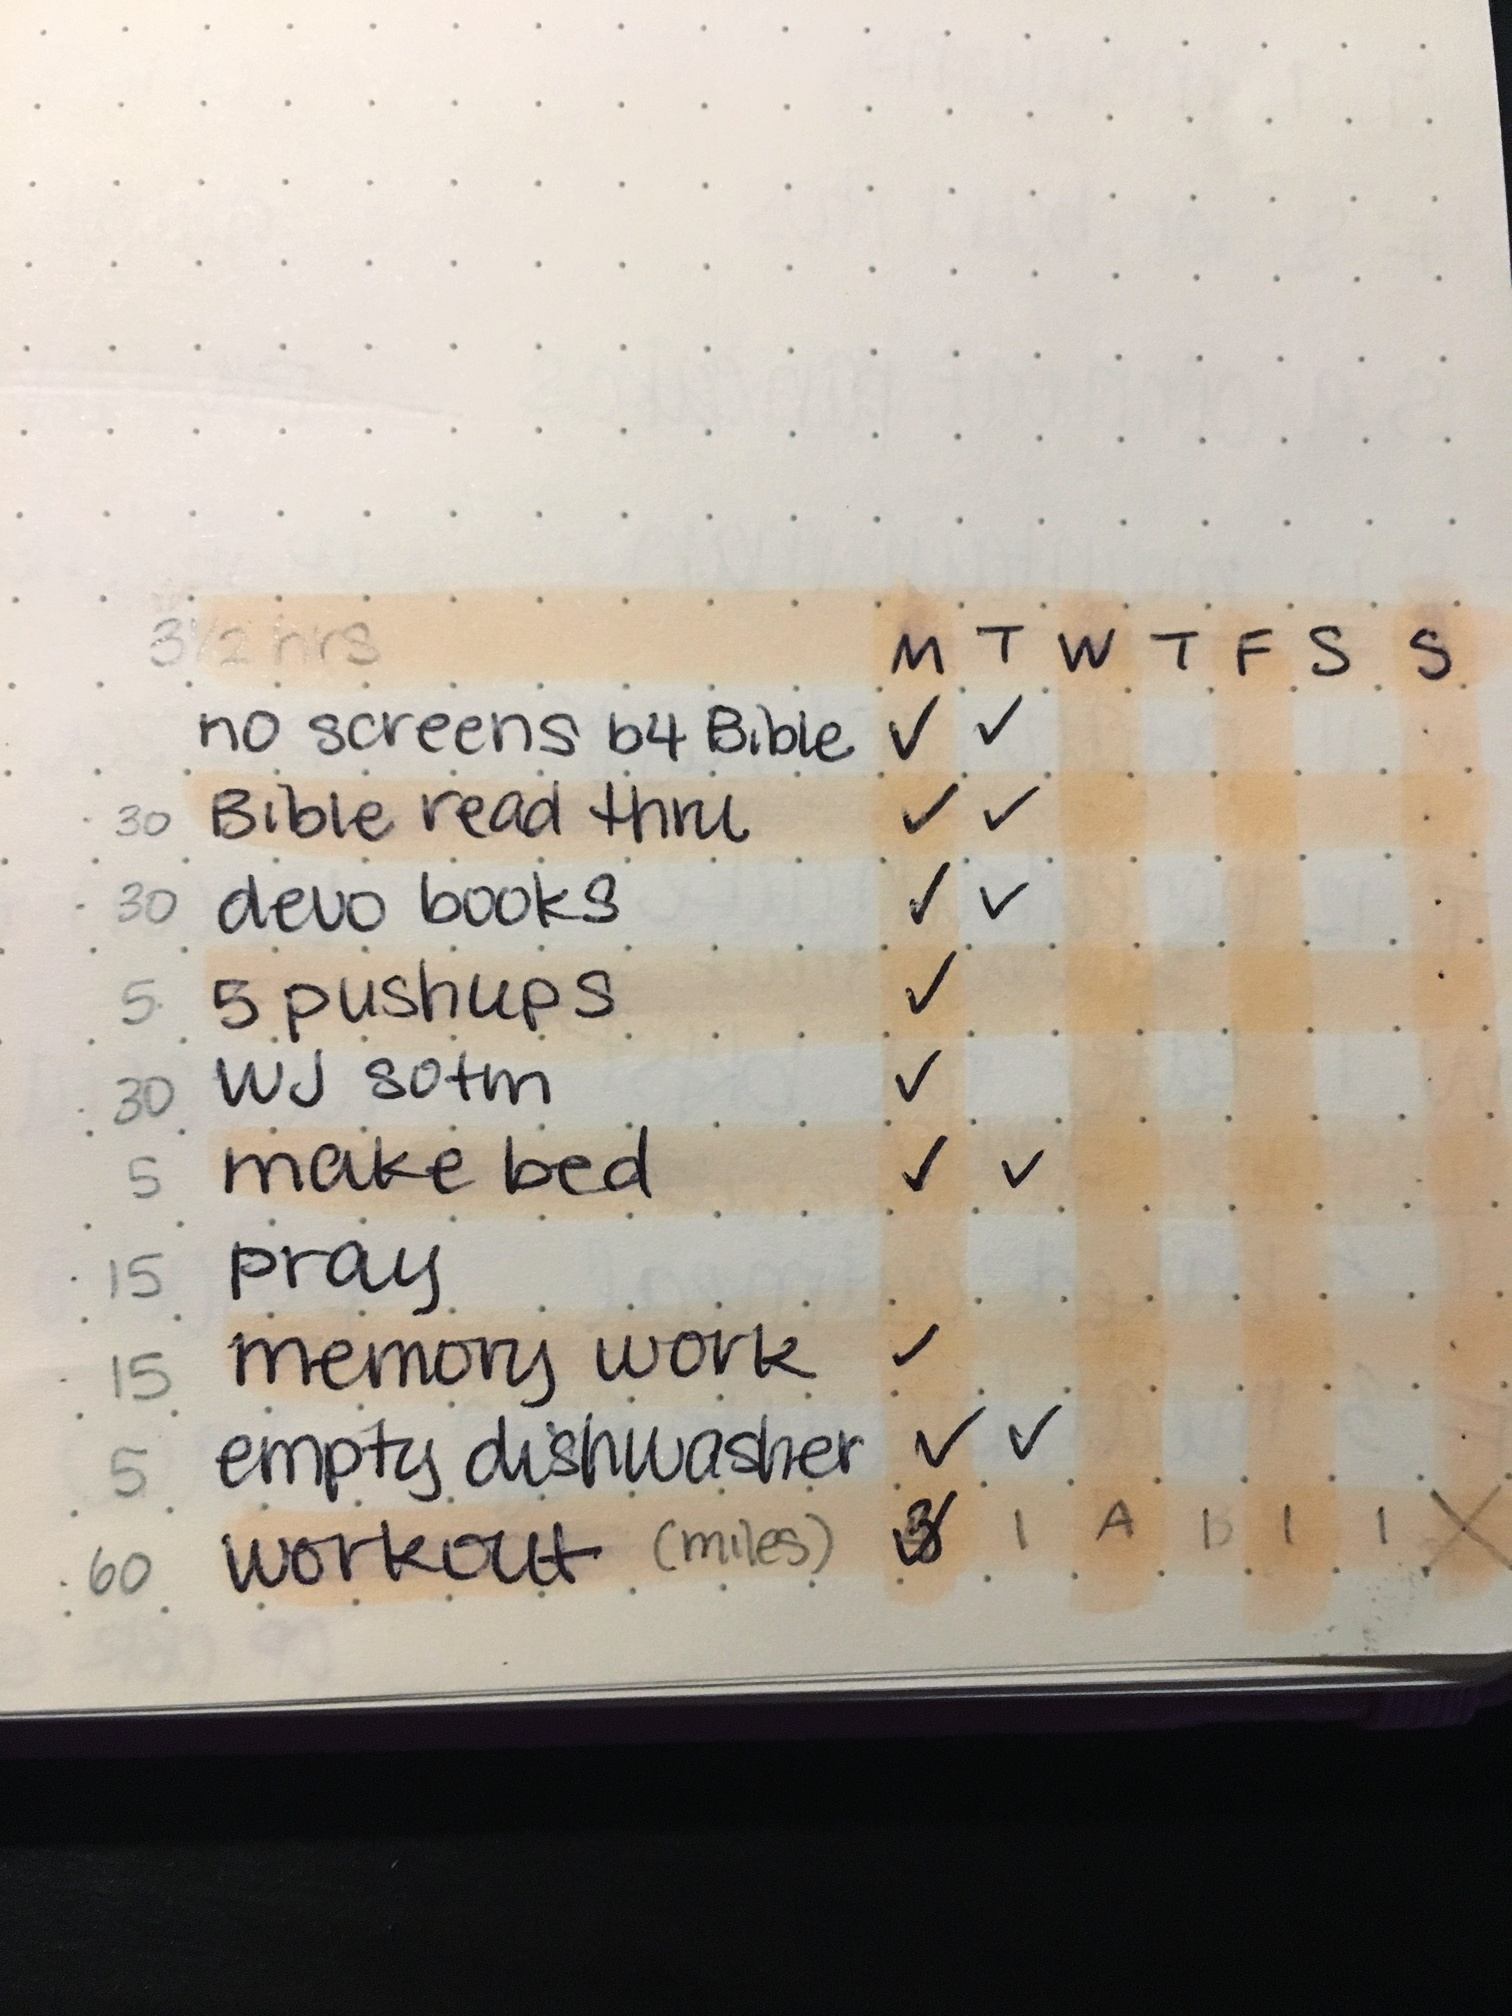 3 1/2 hrs M T W T F S S
no screens b4 Bible ✓ ✓
30 Bible read thru ✓ ✓
30 devo books ✓ ✓
5 5 pushups ✓
30 WJ sotm ✓
5 make bed ✓ ✓
15 pray
15 memory work ✓
5 empty dishwasher ✓ ✓
60 workout (miles) ✓ 1 A 1 1 X